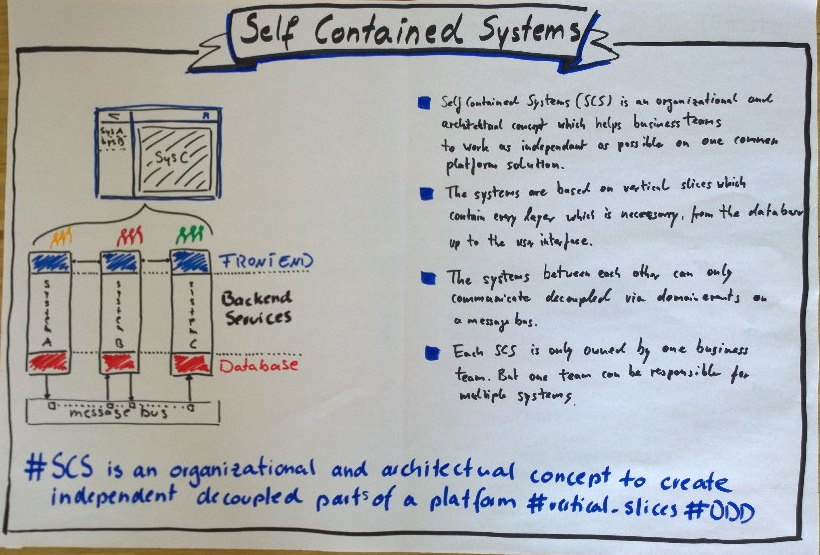 Self Contained Systems
Sys A
Sys B
Sys C
FRONTEND
Backend
Services
Database
System A
System B
System C
message bus
Self Contained Systems (SCS) is an organizational and
architectual concept which helps business teams
to work as independant as possible on one common
platform solution.
The systems are based on vertical slices which
contain every layer which is necessary, from the database
up to the user interface.
The systems between each other can only
communicate decoupled via domain events on
a message bus.
Each SCS is only owned by one business
team. But one team can be responsible for
multiple systems.
#SCS is an organizational and architectual concept to create
independent decoupled parts of a platform #vertical-slices #DDD